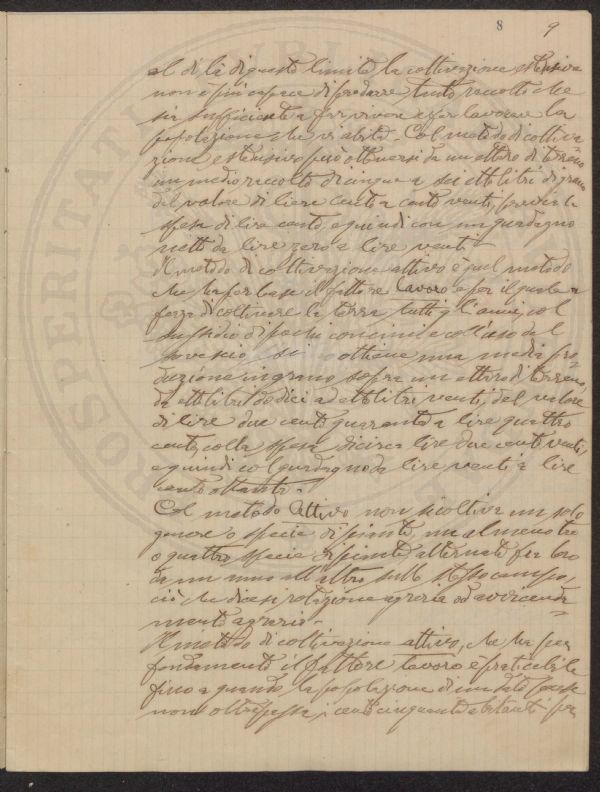 8 9
al di là di questo limite la coltivazione estensiva
non è più capace di produrre, tanto raccolto che
sia sufficiente a far vivere e far lavorare la
popolazione che vi abita. Col metodo di coltiva
zione estensivo può ottenersi da un ettaro di terreno
un medio raccolto di cinque a sei ettolitri di grano
del valore di lire cento a cento venti, previa la
spesa di lire cento, e quindi con un guadagno
netto da lire zero a lire venti.
Il metodo di coltivazione attivo è quel metodo
che ha per base il fattore lavoro e per il quale a
forza di coltivare la terra tutti gli anni, col
sussidio di pochi concimi e coll'uso del
sovescio, si ottiene una media pro=
duzione in grano, sopra un ettaro di terreno,
da ettolitri dodici ad ettolitri venti, del valore
di lire due cento quaranta a lire quattro
cento, colla spesa di circa lire due cento venti,
e quindi col guadagno da lire venti a lire
cento ottanta.
Col metodo attivo non si coltiva un solo
genere o specie di piante, ma almeno tre
o quattro specie di piante alternate fra loro
da un anno all'altro sullo stesso campo,
ciò che dicesi rotazione agraria od avvicenda=
mento agrario.
Il metodo di coltivazione attivo, che ha per
fondamento il fattore lavoro è praticabile
fino a quando la popolazione di un dato paese
non oltrepassa i cento cinquanta abitanti per